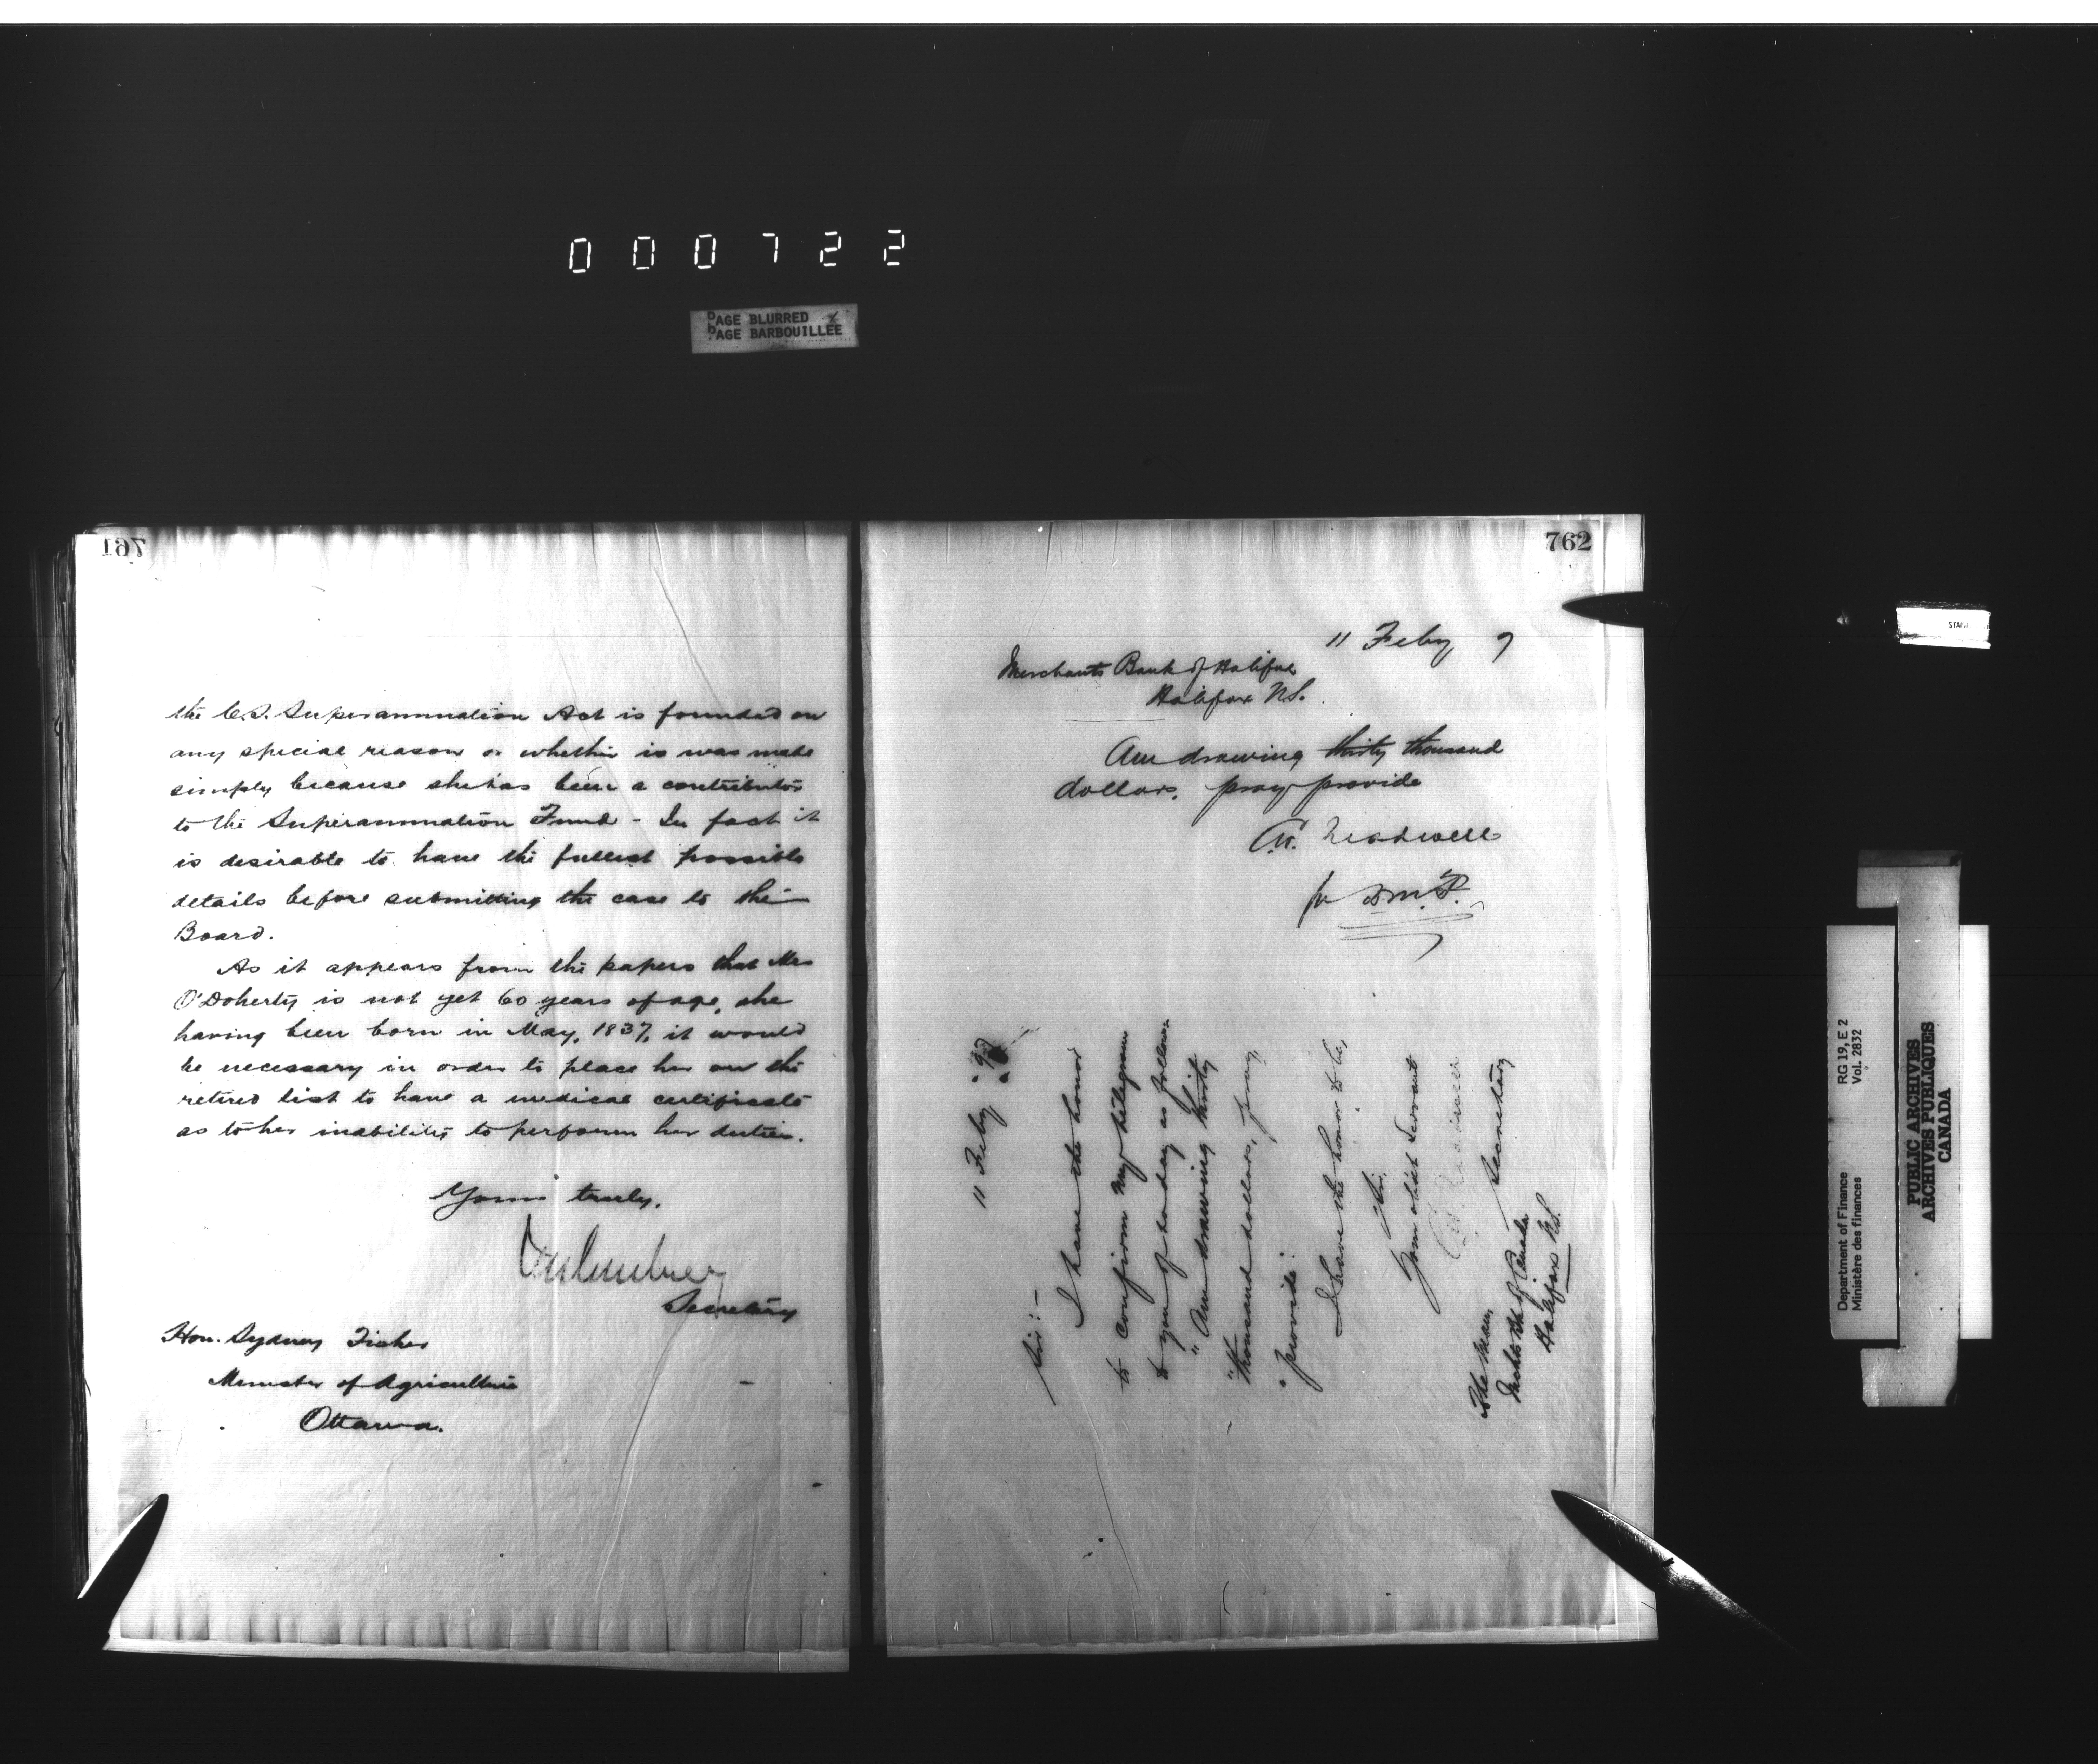 000722
PAGE BLURRED
PAGE BARBOUILLEE
761
the C.S. Superannuation Act is founded on
any special reason or whether is was made
simply because she has been a contributor
to the Superannuation Fund - In fact it
is desirable to have the fullest possible
details before submitting the case to the
Board.
As it appears from the papers that Mrs
O'Doherty is not yet 60 years of age, she
having been born in May, 1837, it would
be necessary in order to place her on the
retired list to have a medical certificate
as to her inability to perform her duties.
Yours truly,
Secretary
Hon. Sydney Fisher
Minister of Agriculture
Ottawa.
762
11 Feby 7
Merchants Bank of Halifax
Halifax N.S.
Am drawing thirty thousand
dollars, pray provide
for
11 Feby 97
Sir:-
I have the honor
to confirm my telegram
to you of to-day as follows
"Am drawing thirty
"thousand dollars, pray
"provide".
I have the honor to be,
Sir,
Your obdt Servant
Secretary
The Man.
Mchts Bk of Canada
Halifax N.S.
Department of Finance
Ministère des finances
RG 19, E 2
Vol. 2832
PUBLIC ARCHIVES
ARCHIVES PUBLIQUES
CANADA